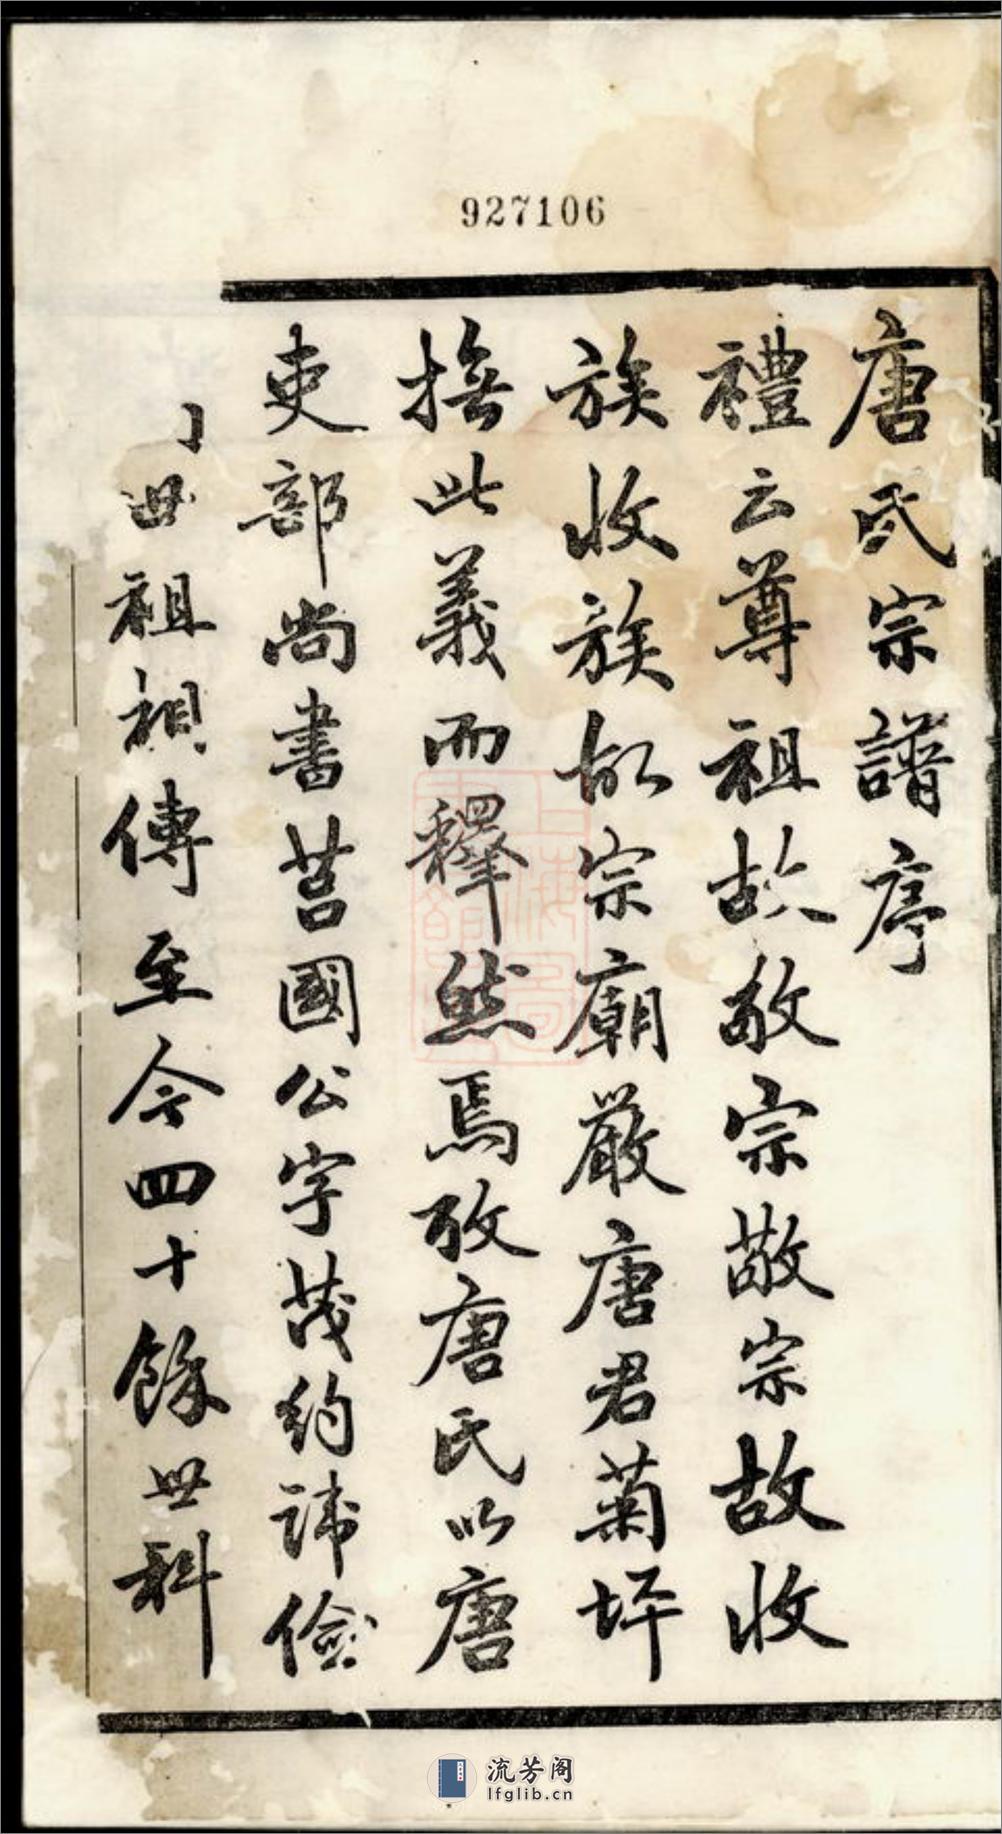 927106
唐氏宗譜序
禮云尊祖故敬宗敬宗故收
族收族故宗廟嚴唐君菊坪
撫此義而釋然焉攷唐氏以唐
吏部尚書莒國公字茂約諱儉
世祖相傳至今四十餘世科
流芳阁
lfglib.cn